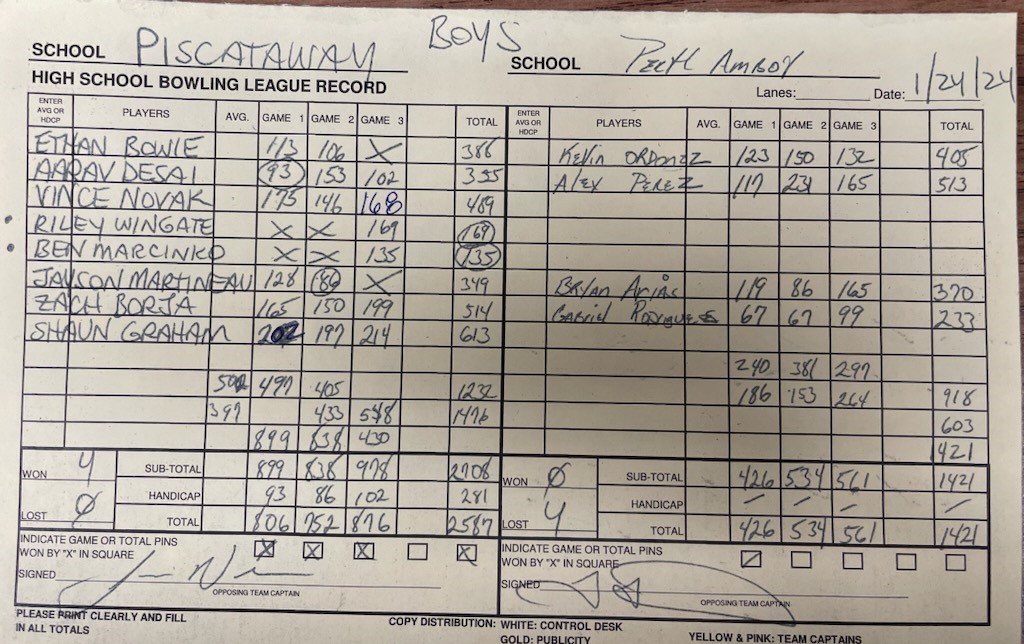 BOYS
SCHOOL PISCATAWAY SCHOOL Perth AMBOY
HIGH SCHOOL BOWLING LEAGUE RECORD Lanes: Date: 1/24/24
ENTER AVG OR HDCP PLAYERS AVG. GAME 1 GAME 2 GAME 3 TOTAL ENTER AVG OR HDCP PLAYERS AVG. GAME 1 GAME 2 GAME 3 TOTAL
ETHAN BOWIE 113 106 X Kevin ORDONEZ 123 150 132 405
AARAV DESAI 93 153 102 Alex PEREZ 117 231 165 513
VINCE NOVAK 175 146 168 489
RILEY WINGATE X X 169 169
BEN MARCINKO X X 135 135
JAYSON MARTINEAU 128 X 349 Brian Arias 119 86 165 370
ZACH BORJA 165 150 199 514 Gabriel 67 67 99 233
SHAUN GRAHAM 202 197 214 613
240 381 297
497 405 1232 186 153 264 918
397 433 548 1476 603
899 838 430 1421
WON 4 SUB-TOTAL 899 838 978 2708 WON 0 SUB-TOTAL 426 534 561 1421
HANDICAP 93 86 102 281 HANDICAP - - - -
LOST 0 TOTAL 806 752 876 LOST 4 TOTAL 426 534 561 1421
INDICATE GAME OR TOTAL PINS INDICATE GAME OR TOTAL PINS
WON BY "X" IN SQUARE X X X X WON BY "X" IN SQUARE
SIGNED SIGNED
OPPOSING TEAM CAPTAIN OPPOSING TEAM CAPTAIN
PLEASE PRINT CLEARLY AND FILL COPY DISTRIBUTION: WHITE: CONTROL DESK YELLOW & PINK: TEAM CAPTAINS
IN ALL TOTALS GOLD: PUBLICITY